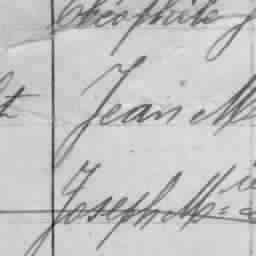 Théophile J
t Jean M
Joseph M.ie